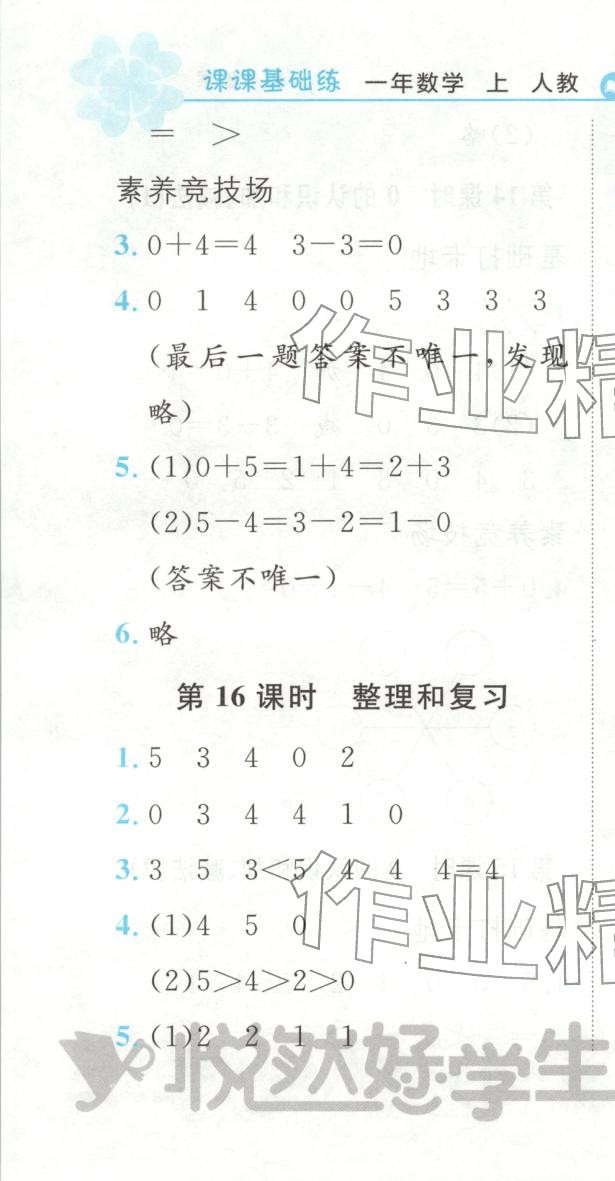 课课基础练 一年数学 上 人教
= >
素养竞技场
3. 0+4=4 3-3=0
4. 0 1 4 0 0 5 3 3 3
(最后一题答案不唯一,发现
略)
5. (1)0+5=1+4=2+3
(2)5-4=3-2=1-0
(答案不唯一)
6. 略
第16课时 整理和复习
1. 5 3 4 0 2
2. 0 3 4 4 1 0
3. 3 5 3<5 4 4 4=4
4. (1)4 5 0
(2)5>4>2>0
5. (1)2 2 1 1
作业精
作业精
悦然好学生